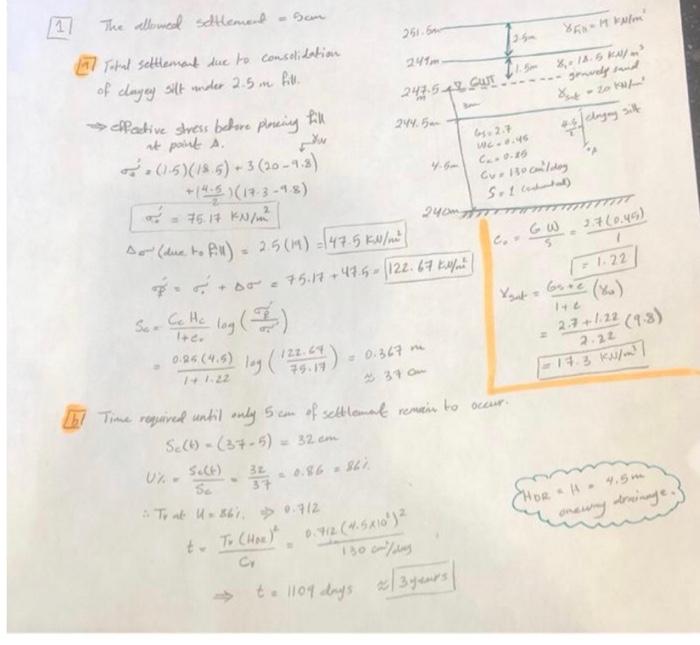 1 The allowed settlement = 5cm
a) Total settlement due to consolidation
of clayey silt under 2.5 m fill.
⇒ effective stress before placing fill
at point A.
γw
σo' = (1.5)(18.5) + 3(20-9.8)
+(4.5/2)(17.3-9.8)
σo' = 75.17 KN/m²
Δσ (due to fill) = 2.5(19) = 47.5 KN/m²
= σo' + Δσ = 75.17 + 47.5 = 122.67 KN/m²
Sc = Cc Hc / 1+eo log ( )
= 0.85(4.5) / 1+1.22 log (122.67 / 75.17) = 0.367 m
≈ 37 cm
251.5m
2.5m
γfill = 19 KN/m³
249m
1.5m
γ = 18.5 KN/m³
247.5 m
GWT
gravely sand
3m
γsat = 20 KN/m³
244.5m
4.5m
Gs = 2.7
Wc = 0.45
Cc = 0.85
Cv = 130 cm²/day
S = 1 (saturated)
4.5/2
clayey silt
A
240m
eo = G W / S = 2.7(0.45) / 1
= 1.22
γsat = Gs+e / 1+e (γw)
= 2.7+1.22 / 2.22 (9.8)
= 17.3 KN/m³
b) Time required until only 5 cm of settlement remain to occur.
Sc(t) = (37-5) = 32 cm
U% = Sc(t) / Sc = 32 / 37 = 0.86 = 86%
∴ Tv at U = 86% ⇒ 0.712
t = Tv (HDR)² / Cv = 0.712 (4.5x10²)² / 130 cm²/day
⇒ t = 1109 days ≈ 3 years
HDR = H = 4.5m
oneway drainage.